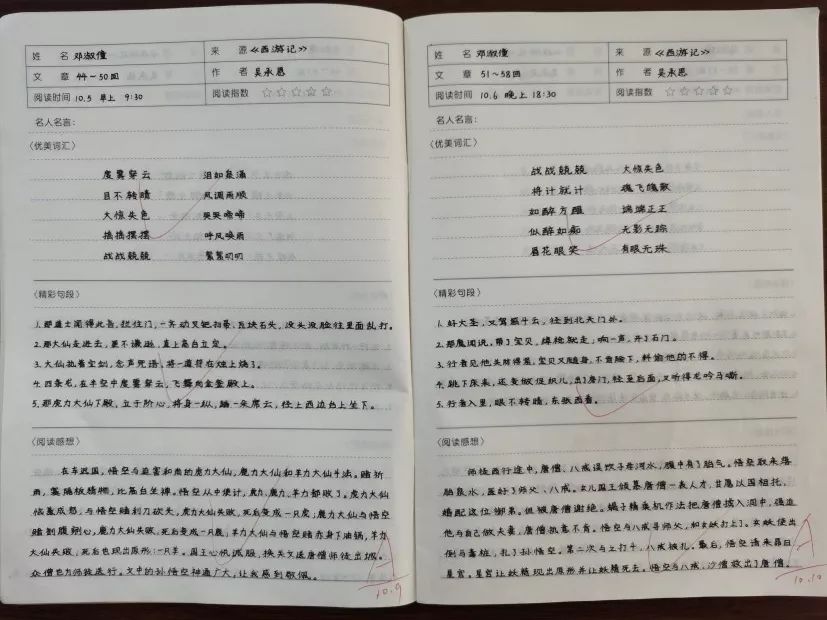 姓 名 邓淑僮 来 源 《西游记》
文 章 44～50回 作 者 吴承恩
阅读时间 10.5 早上 9:30 阅读指数 ☆☆☆☆☆
名人名言:
〈优美词汇〉
度雾穿云 泪如泉涌
目不转睛 风调雨顺
大惊失色 哭哭啼啼
摇摇摆摆 呼风唤雨
战战兢兢 絮絮叨叨
〈精彩句段〉
1.那道士闻得此言,拦住门,一齐动叉钯扫帚,瓦块石头,没头没脸往里面乱打。
2.那大仙走进去,更不谦逊,直上高台立定。
3.大仙执着宝剑,念声咒语,将一道符在烛上烧了。
4.西鱼龙,在半空中度雾穿云,飞舞向金銮殿上。
5.那虎力大仙下殿,立于阶心,将身一纵,踏一朵席云,径上西边台上坐下。
〈阅读感想〉
在车迟国,悟空与迫害和尚的虎力大仙,鹿力大仙和羊力大仙斗法。赌祈
雨,云隔板猜物,比高台坐禅。悟空从中使计,虎力,鹿力,羊力都败了。虎力大仙
恼羞成怒,与悟空赌利刀砍头,虎力大仙失败,死后变成一只虎;鹿力大仙与悟空
赌剖腹剜心,鹿力大仙失败,死后变成一只鹿;羊力大仙与悟空赌赤身下油锅,羊力
大仙失败,死后也现出原形:一只羊。国王心悦诚服,换关文送唐僧师徒出城。
众僧也为师徒送行。文中的孙悟空神通广大,让我感到敬佩。
A
10.9
姓 名 邓淑僮 来 源 《西游记》
文 章 51～58回 作 者 吴承恩
阅读时间 10.6 晚上 18:30 阅读指数 ☆☆☆☆☆
名人名言:
〈优美词汇〉
战战兢兢 大惊失色
将计就计 魂飞魄散
如醉方醒 端端正正
似醉如痴 无影无踪
眉花眼笑 有眼无珠
〈精彩句段〉
1.好大圣,又驾筋斗云,径到北天门外。
2.那魔闻说,带了宝贝,绰枪就走,响一声,开了石门。
3.行者见他头势得重,宝贝又随身,不曾除下,料偷他的不得。
4.跳下床来,还变做促织儿,出了房门,径至后面,又听得龙吟马嘶。
5.行者入里,眼不转睛,东张西看。
〈阅读感想〉
师徒西行途中,唐僧、八戒误饮子母河水,腹中有了胎气。悟空取来落
胎泉水,医好了师父、八戒。女儿国王倾慕唐僧一表人才,甘愿以国相托,
婚配这位御弟。但被唐僧谢绝。蝎子精乘机作法把唐僧摄入洞中,强迫
他与自己做夫妻,唐僧执意不肯。悟空与八戒寻师父,和女妖打上了。女妖使出
倒马毒桩,扎了孙悟空。第二次与上打斗,八戒被扎。最后,悟空请来昴日
星官。星官让妖精现出原形并让妖精死去。悟空与八戒,沙僧救出了唐僧。
A
10.10